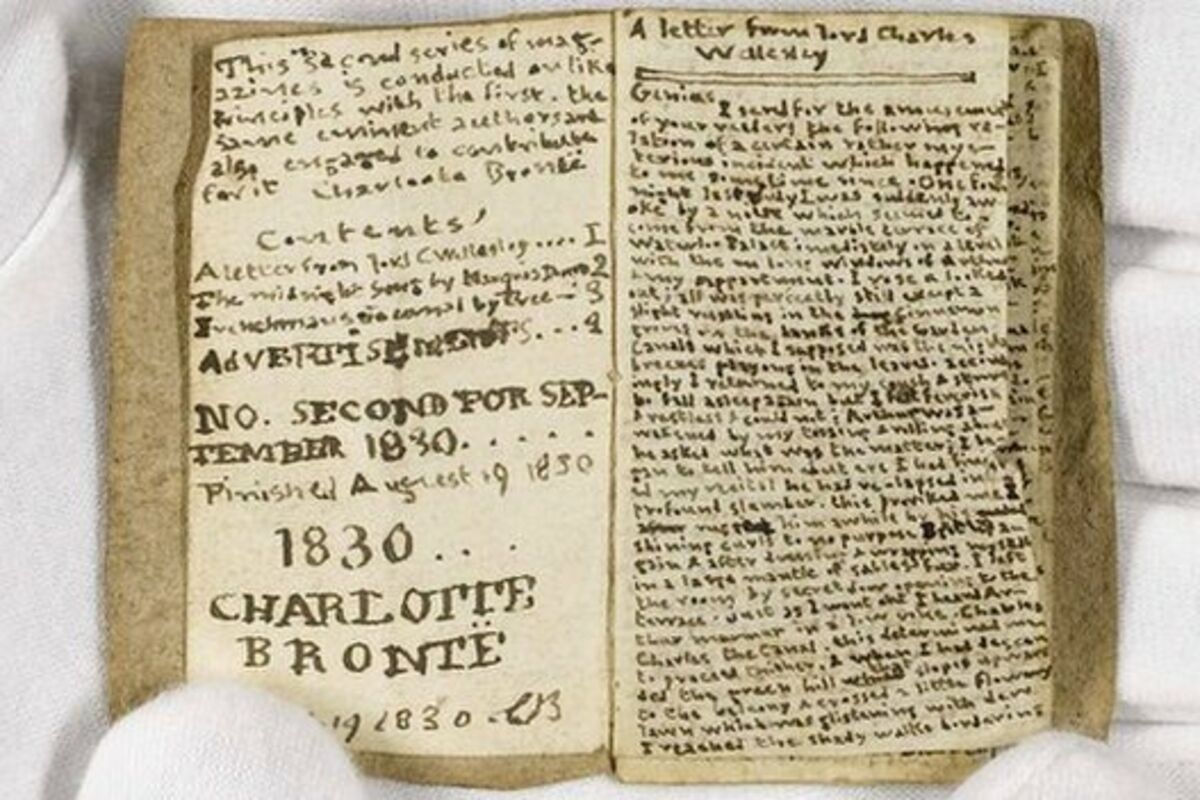 This second series of mag-
azines is conducted on like
Principles with the first. the
same eminent authors are
also engaged to contribute
for it Charlotte Brontë
Contents
A letter from lord C Wellesley .... I
The midnight song by Marquis Douro 2
by Tree — 3
ADVERTISEMENTS... 4
NO. SECOND FOR SEP-
TEMBER 1830......
Finished August 19 1830
1830....
CHARLOTTE
BRONTË
19 1830. CB
A letter from lord Charles
Wellesley
Genius
I send for the amusement
of your readers the following re-
lation of a certain rather mys-
terious incident which happened
to me sometime since. One fine
night last July I was suddenly aw
oke by a noise which seemed to
come from the marble terrace of
Waterloo Palace imediately on a level
with the windows of Arthur
& my appartment. I rose & looked
out; all was perfectly still except a
slight rustling in the cinnamon
groves on the banks of the Garden
Canals which I supposed was the night
breezes playing in the leaves. accord
ingly I returned to my couch & strove
to fall asleep again but I felt feverish
& restless & could not; Arthur was a-
wakened by my tossing & rolling about
he asked what was the matter; I be-
gan to tell him but ere I had finish
ed my recital he had re-lapsed into
profound slumber. this provoked me I
him awhile by his
shining curls to no purpose a-
gain & after dressing & wrapping myself
in a large mantle of sables fur. I left
the room by secret door opening to the
terrace. Just as I went out I heard Ar-
thur murmur in a low voice, Charles
Charles the Canal. this determined me
to proceed thither. & when I had descen
ded the green hill which slopes upward
to the balcony & crossed a little flowery
lawn which was glistening with dew.
I reached the shady walks bordering